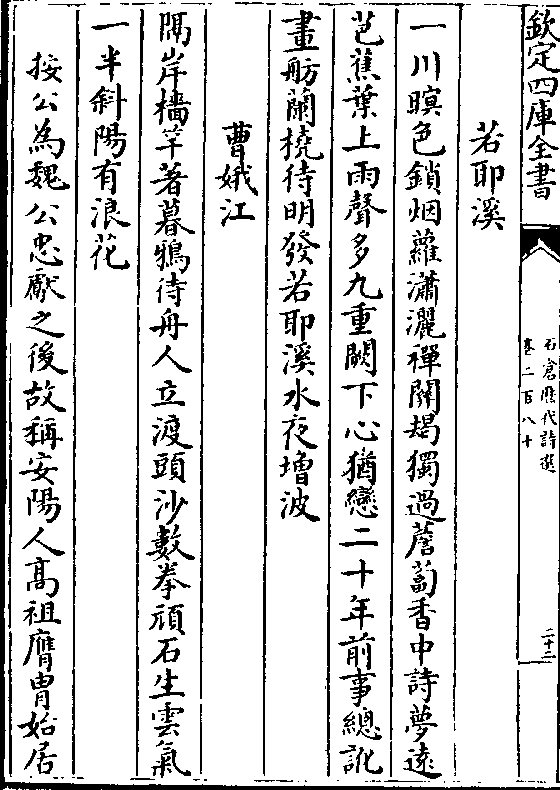 欽定四庫全書
石倉歷代詩選
卷二百八十
二十二
若耶溪
一川暝色鎖烟蘿瀟灑禪關朅獨過薝蔔香中詩夢逺
芭蕉葉上雨聲多九重闕下心猶戀二十年前事總訛
畫舫蘭橈待明發若耶溪水夜增波
曹娥江
隔岸檣竿著暮鴉待舟人立渡頭沙數拳頑石生雲氣
一半斜陽有浪花
按公為魏公忠獻之後故稱安陽人髙祖膺胄始居